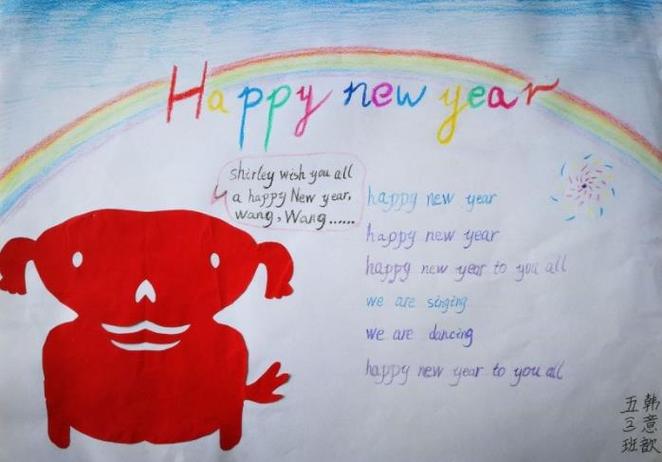 Happy new year
shirley wish you all
a happy New year.
wang, Wang......
happy new year
happy new year
happy new year to you all
we are singing
we are dancing
happy new year to you all
韩意歆
五3班